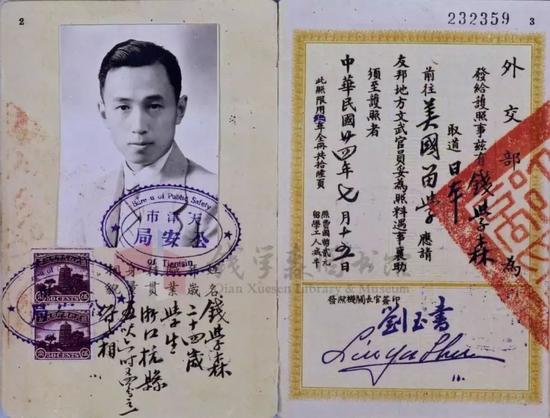 2
天津市
公安局
Bureau of Public Safety
of Tientsin
姓名 錢學森
年歲 二十四歲
職業 學生
籍貫 浙江杭縣
身量
相貌
50 CENTS
50 CENTS
钱学森图书馆
Qian Xuesen Library & Museum
232359
3
外交部 為
發給護照事茲有 錢學森
前往 美國留學 應請
取道 日本
友邦地方文武官員妥為照料遇事襄助
須至護照者
中華民國廿四年七月十五日
此照限用 年全冊共拾陸頁
照費國幣貳元
留學工人減半
發照機關長官簽印
劉玉書
Liu Yu Shu